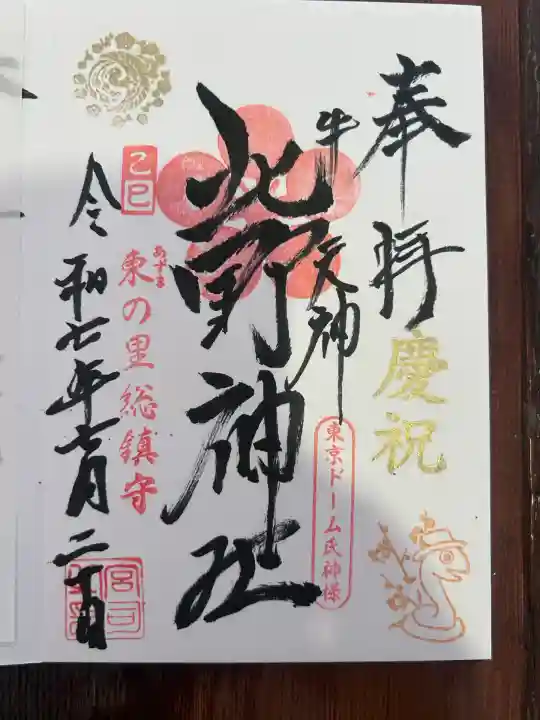 奉拝
慶祝
牛天神
東京ドーム氏神様
北野神社
乙巳
東の里総鎮守
あずま
令和七年七月二十日
宮司